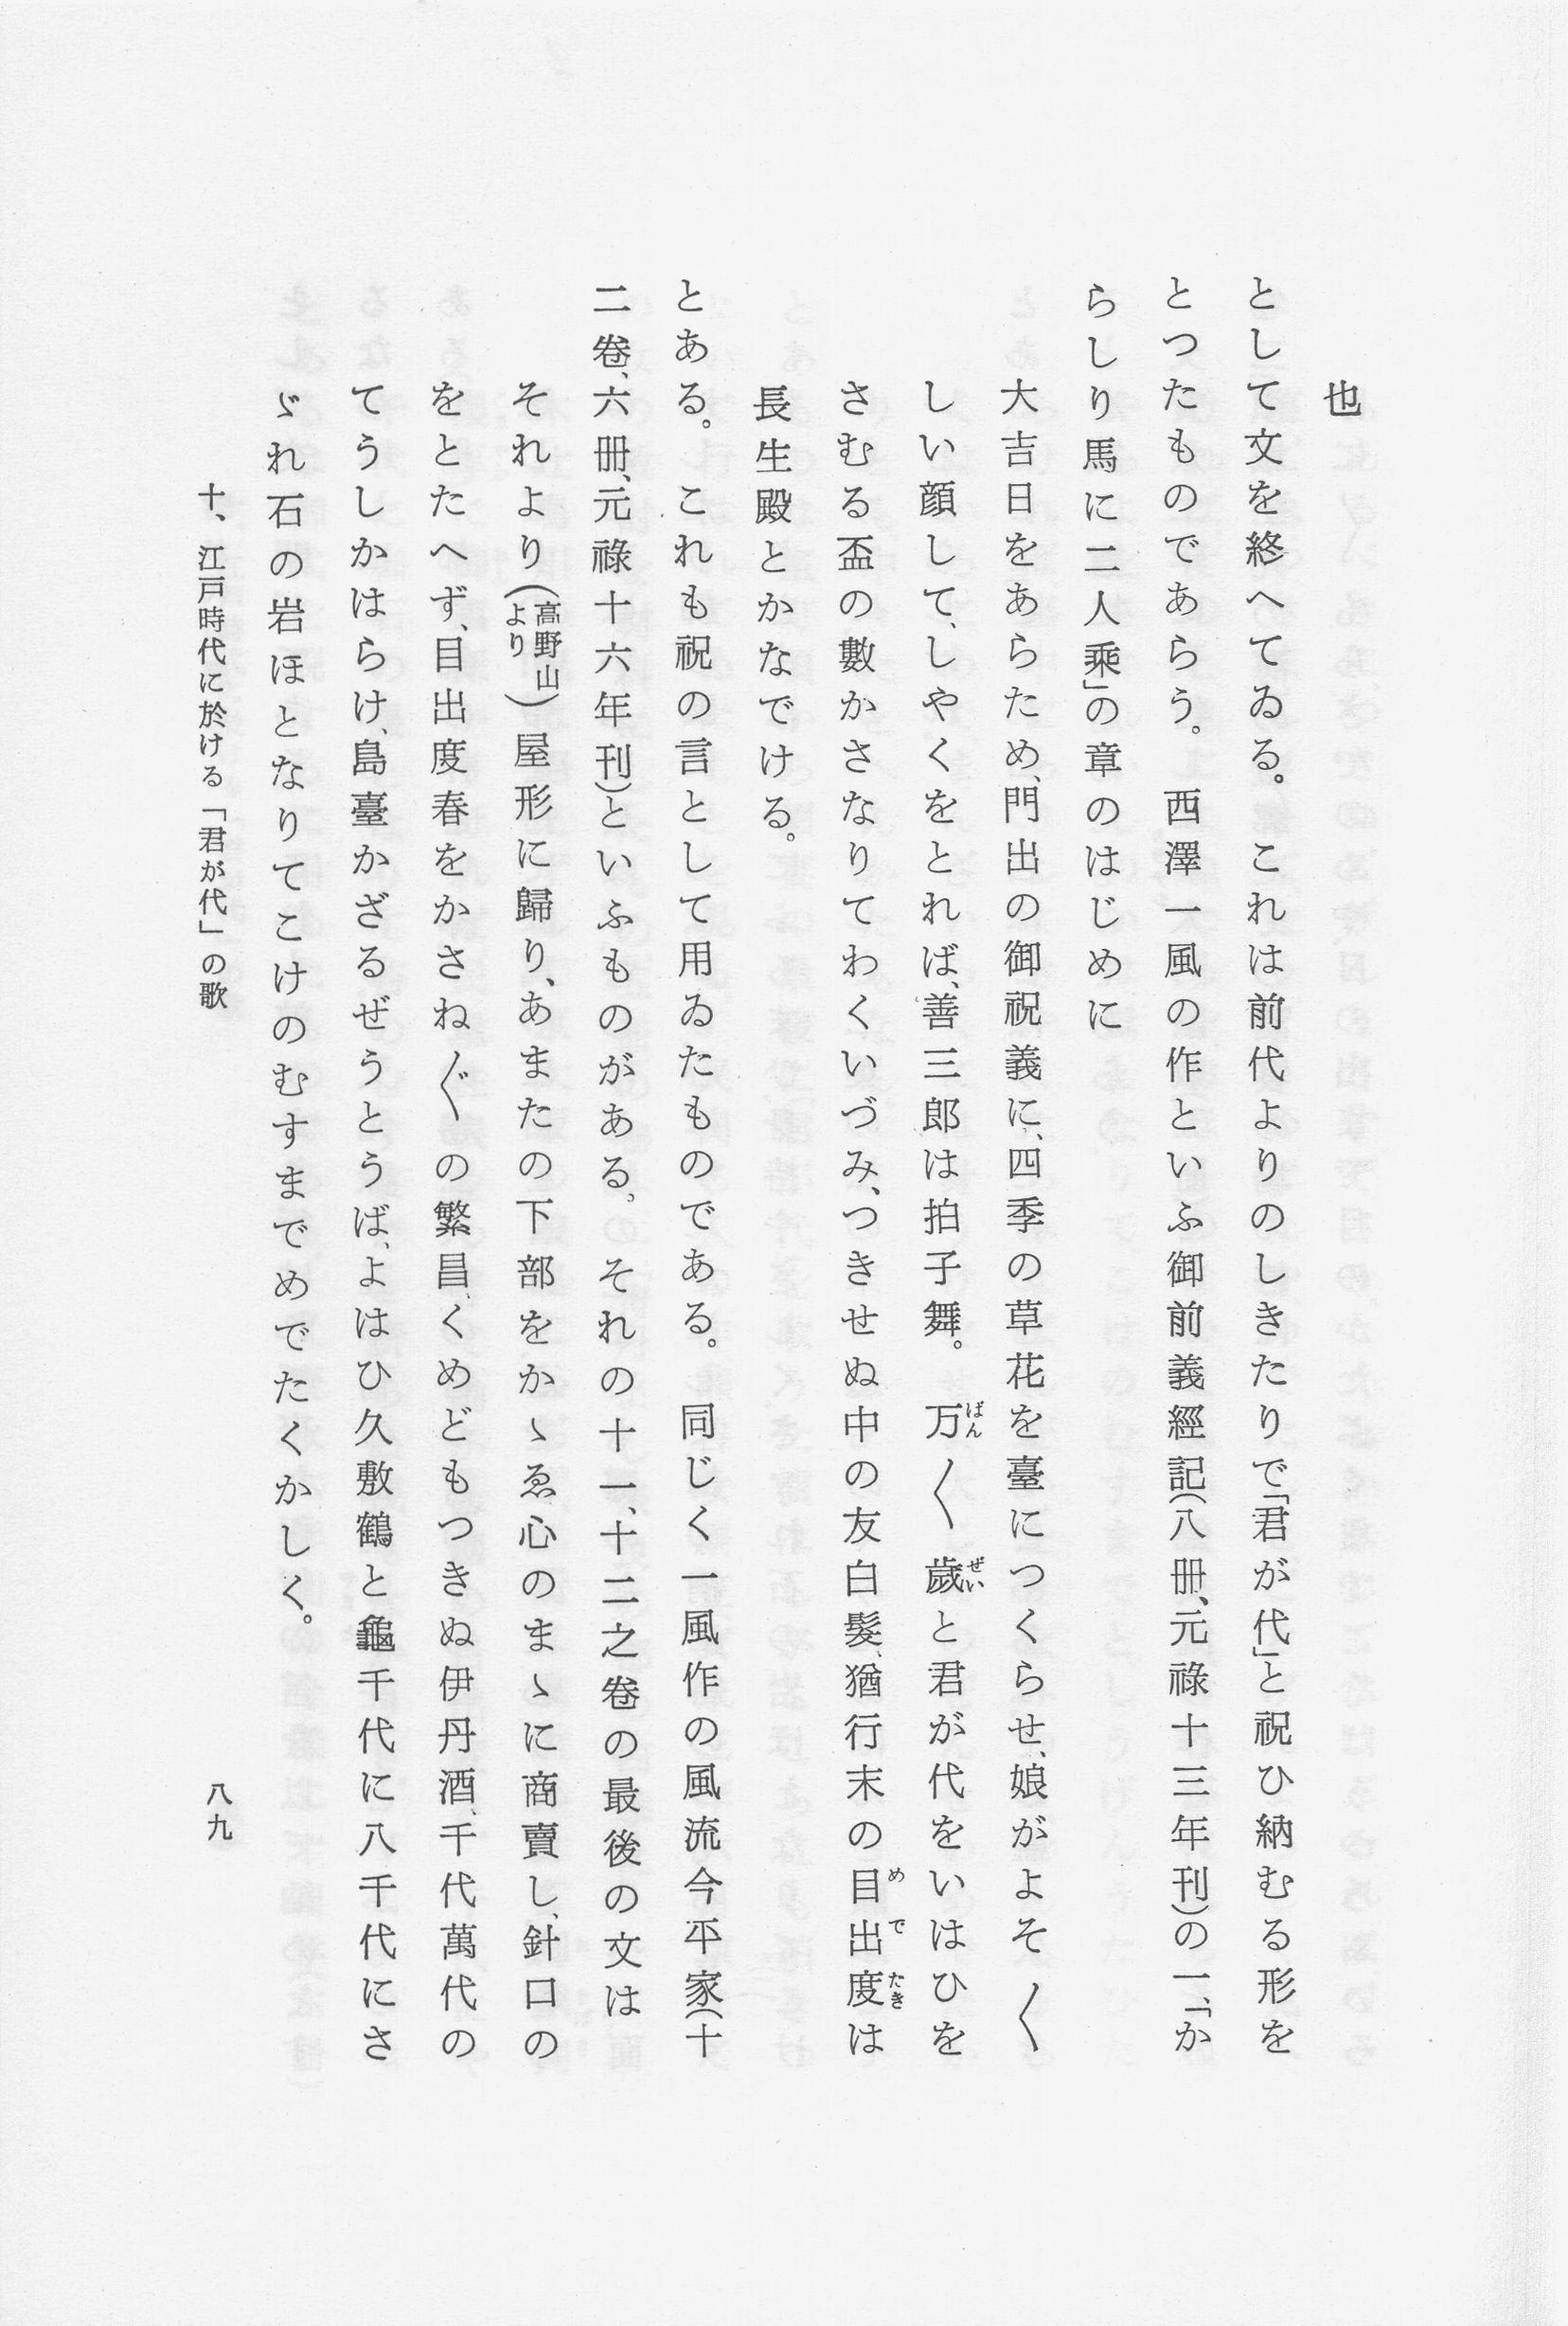 也
として文を終へてゐる。これは前代よりのしきたりで「君が代」と祝ひ納むる形を
とつたものであらう。西澤一風の作といふ御前義經記(八冊、元祿十三年刊)の一、「か
らしり馬に二人乘」の章のはじめに
大吉日をあらため、門出の御祝義に、四季の草花を臺につくらせ、娘がよそ〱
しい顔して、しやくをとれば、善三郎は拍子舞。万〱歲と君が代をいはひを
ばんぜい
さむる盃の數かさなりてわくいづみ、つきせぬ中の友白髮、猶行末の目出度は
めでたき
長生殿とかなでける。
とある。これも祝の言として用ゐたものである。同じく一風作の風流今平家(十
二卷、六冊、元祿十六年刊)といふものがある。それの十一、十二之卷の最後の文は
それより(高野山より)屋形に歸り、あまたの下部をかゝゑ心のまゝに商賣し、針口の
をとたへず、目出度春をかさね〲の繁昌、くめどもつきぬ伊丹酒、千代萬代の
てうしかはらけ、島臺かざるぜうとうば、よはひ久敷鶴と龜千代に八千代にさ
ゞれ石の岩ほとなりてこけのむすまでめでたくかしく。
十、江戸時代に於ける「君が代」の歌
八九